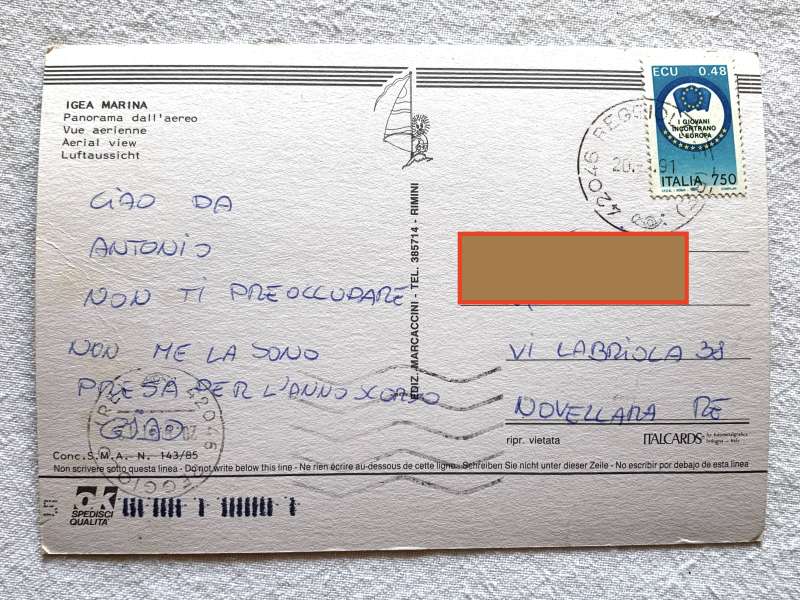 IGEA MARINA
Panorama dall'aereo
Vue aerienne
Aerial view
Luftaussicht
CIAO DA
ANTONIO
NON TI PREOCCUPARE
NON ME LA SONO
PRESA PER L'ANNO SCORSO
CIAO
Conc. S.M.A. N. 143/85
Non scrivere sotto questa linea - Do not write below this line - Ne rien écrire au-dessous de cette ligne - Schreiben Sie nicht unter dieser Zeile - No escribir por debajo de esta linea
OK
SPEDISCI
QUALITA'
EDIZ. MARCACCINI - TEL. 385714 - RIMINI
ECU 0.48
I GIOVANI
INCONTRANO
L'EUROPA
ITALIA 750
42046 REGGIO
20. .91
VI LABRIOLA 38
NOVELLARA RE
ripr. vietata
ITALCARDS
42046
REGGIO